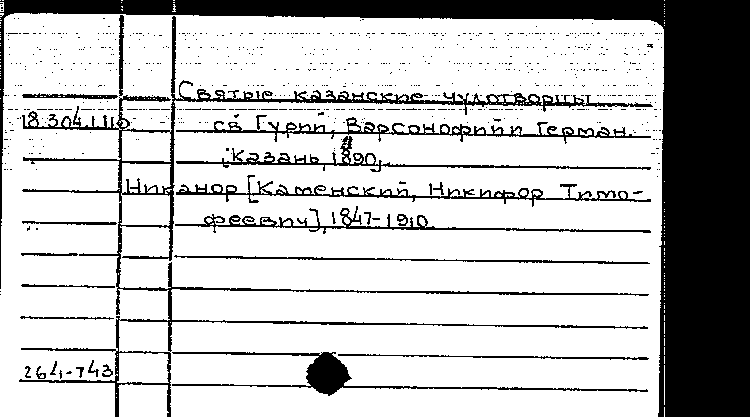 Святые казанские чудотворцы
18.304.1.110 св Гурий, Варсонофий и Герман.
[Казань, 1890].
Никанор [Каменский, Никифор Тимо-
феевич], 1847-1910.
264-743